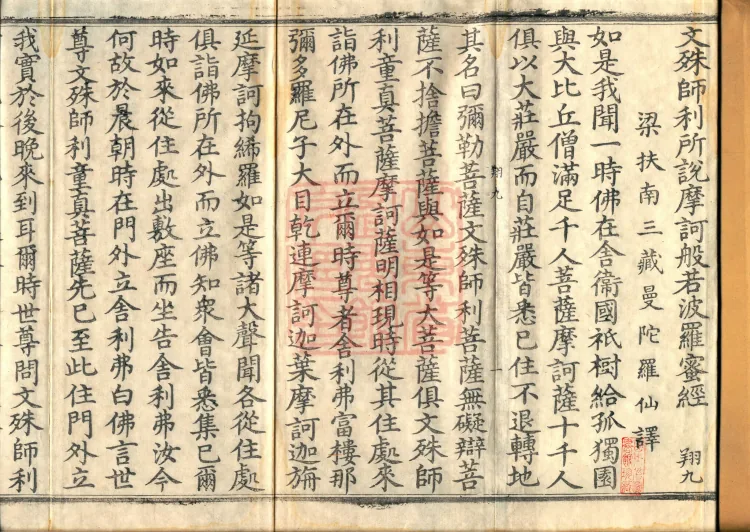 文殊師利所說摩訶般若波羅蜜經 翔九
梁扶南三藏曼陀羅仙譯
如是我聞一時佛在舍衛國祇樹給孤獨園
與大比丘僧滿足千人菩薩摩訶薩十千人
俱以大莊嚴而自莊嚴皆悉已住不退轉地
翔九 一
其名曰彌勒菩薩文殊師利菩薩無礙辯菩
薩不捨擔菩薩與如是等大菩薩俱文殊師
利童真菩薩摩訶薩明相現時從其住處來
詣佛所在外而立爾時尊者舍利弗富樓那
彌多羅尼子大目乾連摩訶迦葉摩訶迦旃
延摩訶拘締羅如是等諸大聲聞各從住處
俱詣佛所在外而立佛知眾會皆悉集已爾
時如來從住處出敷座而坐告舍利弗汝今
何故於晨朝時在門外立舍利弗白佛言世
尊文殊師利童真菩薩先已至此住門外立
我實於後晚來到耳爾時世尊問文殊師利